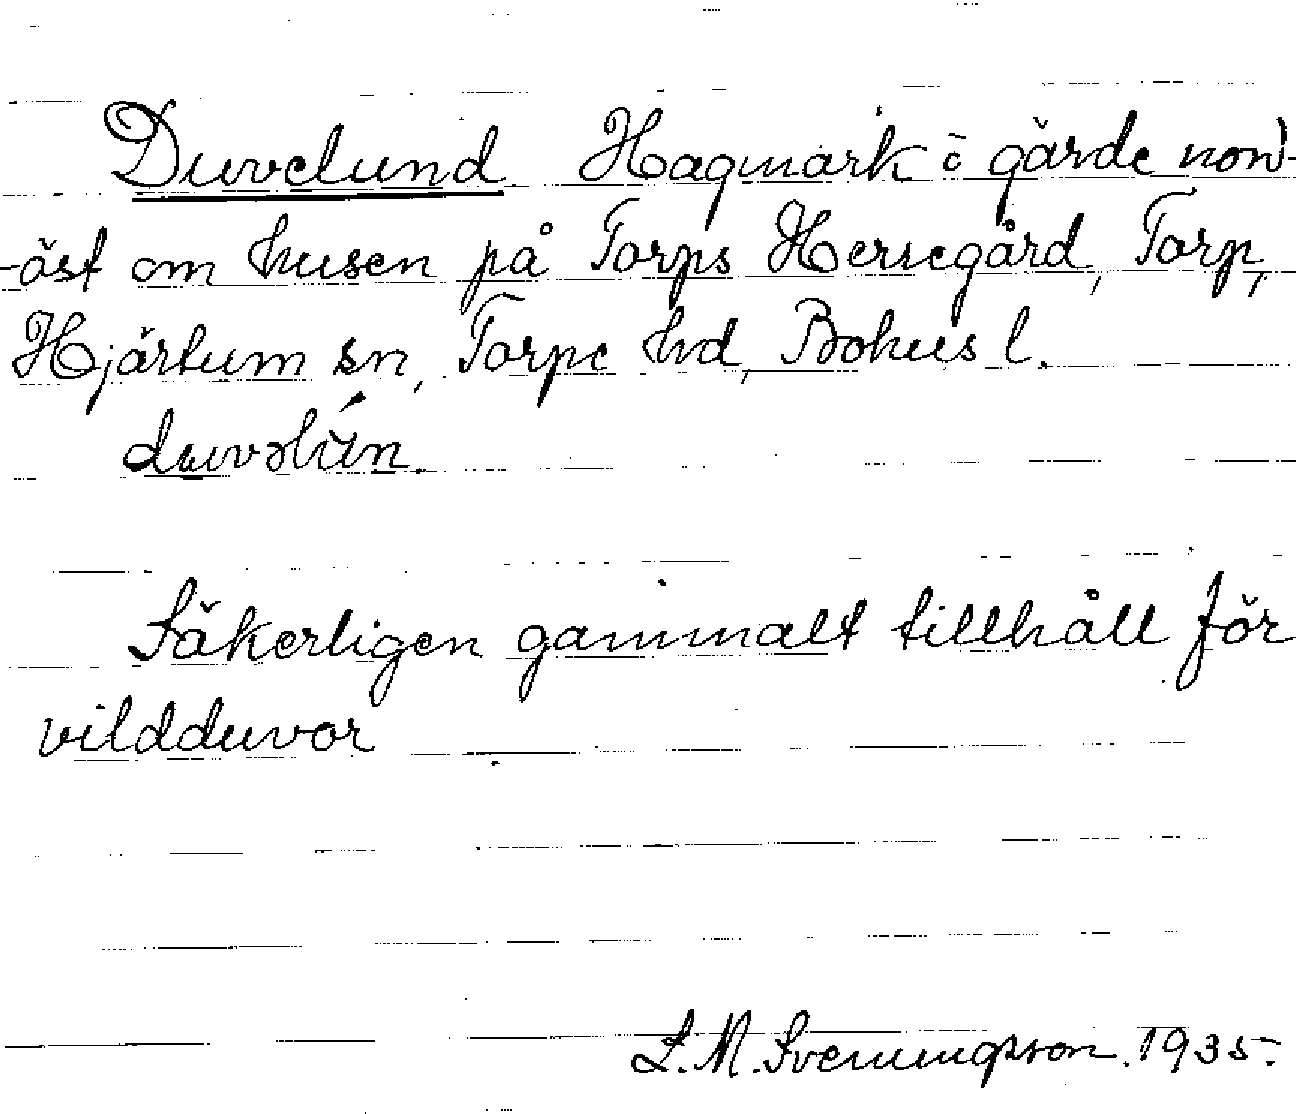 Duvelund. Hagmark i gärde nord-
-öst om husen på Torps Herregård, Torp,
Hjärtum sn, Torpe hd, Bohus l.
duvəlún.
Säkerligen gammalt tillhåll för
vildduvor
L. M. Svenungsson. 1935.